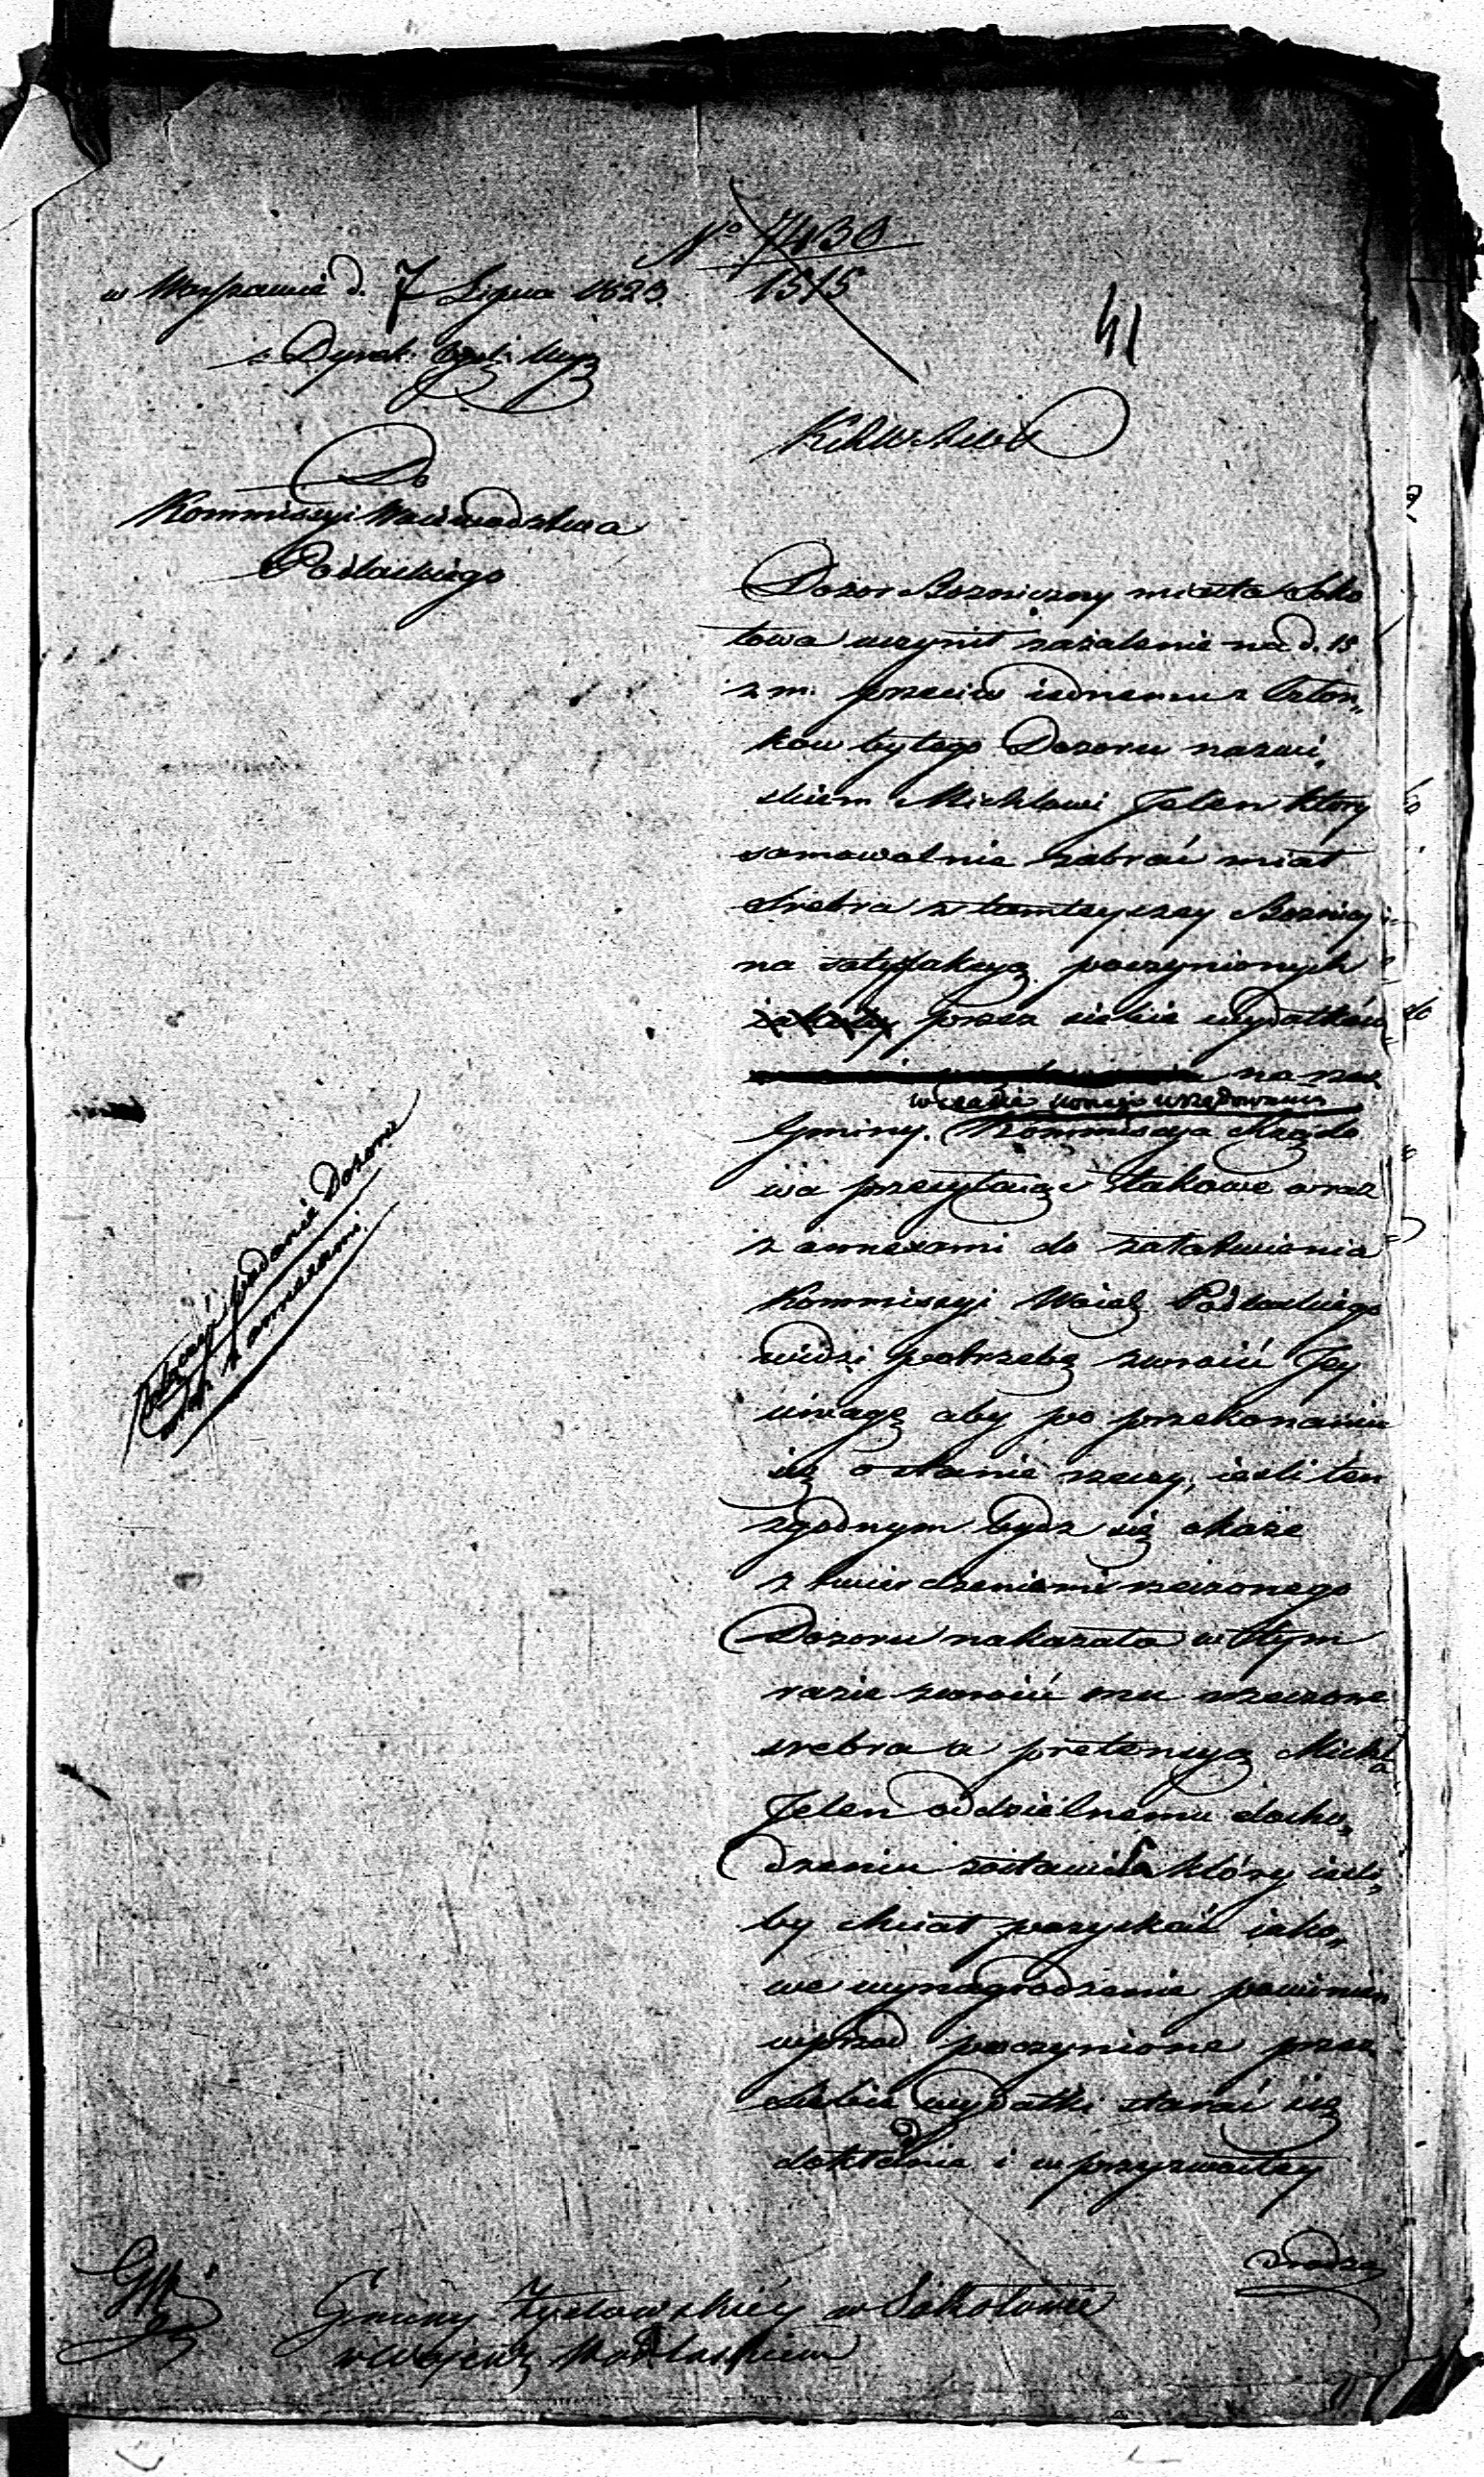 Nº 7430
1515
w Warszawie d. 7 Lipca 1823.
41
Do
Kommissyi Woiewodztwa
Podlaskiego
Dozor Bozniczny miasta Soko
łowa uczynił zażalenie na d. 15
z. m. przeciw iednemu z Człon„
kow bytego Dozoru nazwi„
skiem Michlowi Jelen ktory
samowolnie zabrać miał
srebra z tamteyszey Boznicy
na satysfakcyą poczynionych
przez siebie wydatków
na rzecz
w czasie swego urzędowania
Gminy. Kommissya Rządo
wa przesyłaiąc takowe wraz
z annexami do załatwienia
Kommissyi Woiew. Podlaskiego
widzi potrzebę zwrócić Jey
uwagę aby po przekonaniu
się o stanie rzeczy, iesli ten
zgodnym bydz się okaże
z twierdzeniami rzeczonego
Dozoru nakazała w tym
razie zwrócić mu rzeczone
srebra a pretensyą Michla
Jelen oddzielnemu docho„
dzeniu zostawiła który iesli„
by chciał pozyskać iako„
we wynagrodzenie powinien
wprzod poczynione przez
siebie wydatki starać się
dokładnie i w przyzwoitey
drodze
Dołączyć podanie Dozoru
wraz z annexami.
Gminy Żydowskiéy w Sokołowie
w Wojew. Podlaskiem